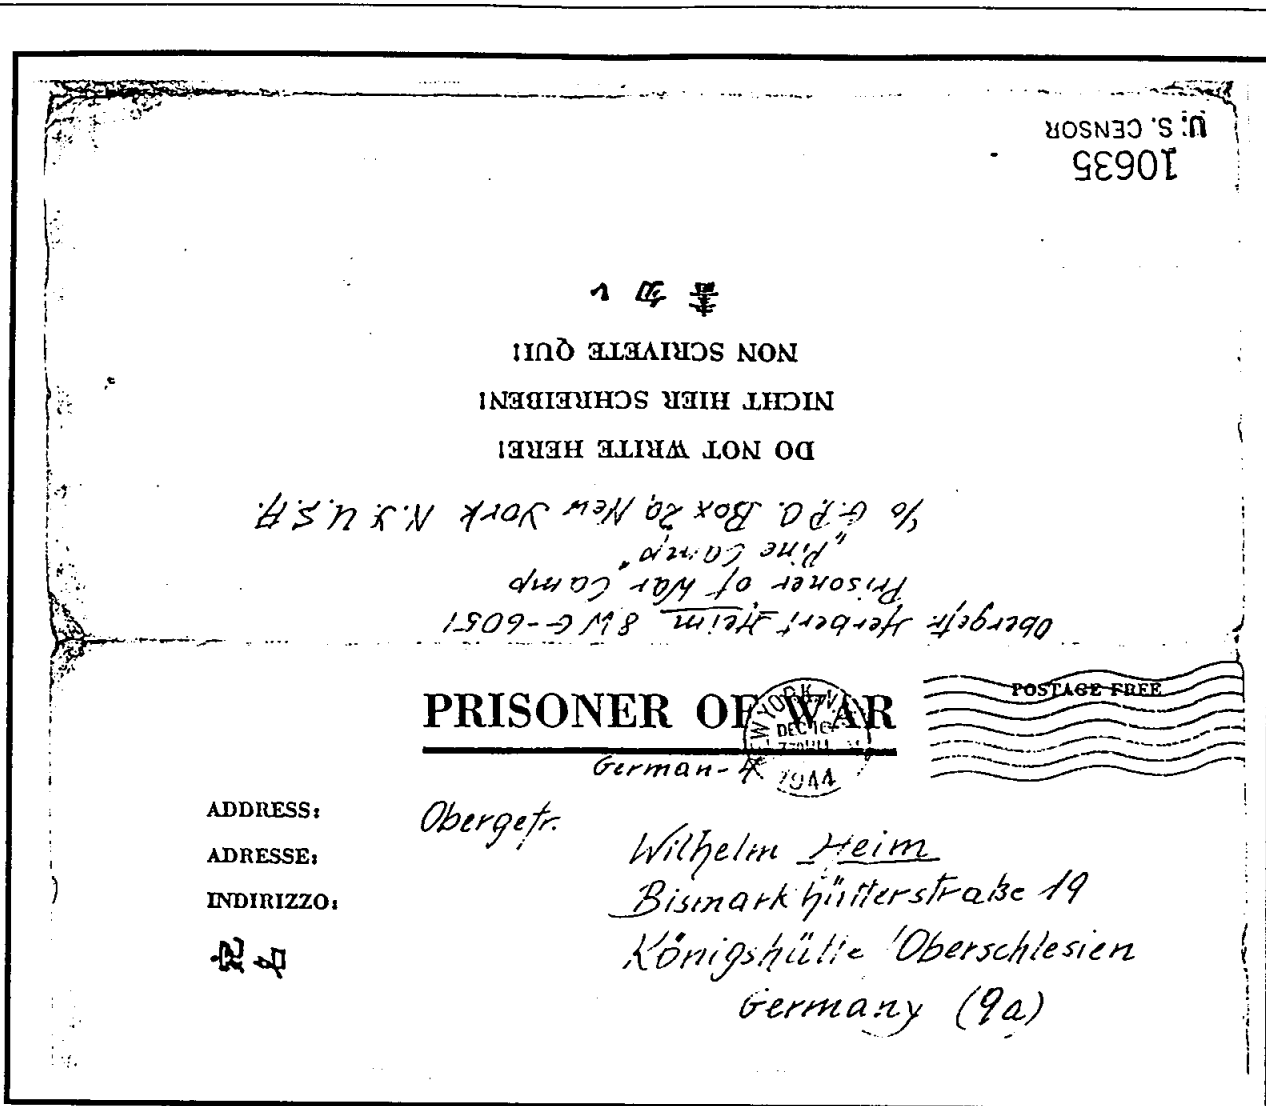 U. S. CENSOR
10635
DO NOT WRITE HERE!
NICHT HIER SCHREIBEN!
NON SCRIVETE QUI!
Obergefr. Herbert Heim 8WG-6051
Prisoner of War Camp
"Pine Camp"
c/o G.P.O. Box 20, New York N.Y. U.S.A.
PRISONER OF WAR
POSTAGE FREE
NEW YORK, N.Y.
DEC 16
1944
German-
ADDRESS:
ADRESSE:
INDIRIZZO:
Obergefr.
Wilhelm Heim
Bismarkhütterstraße 19
Königshütte Oberschlesien
Germany (9a)